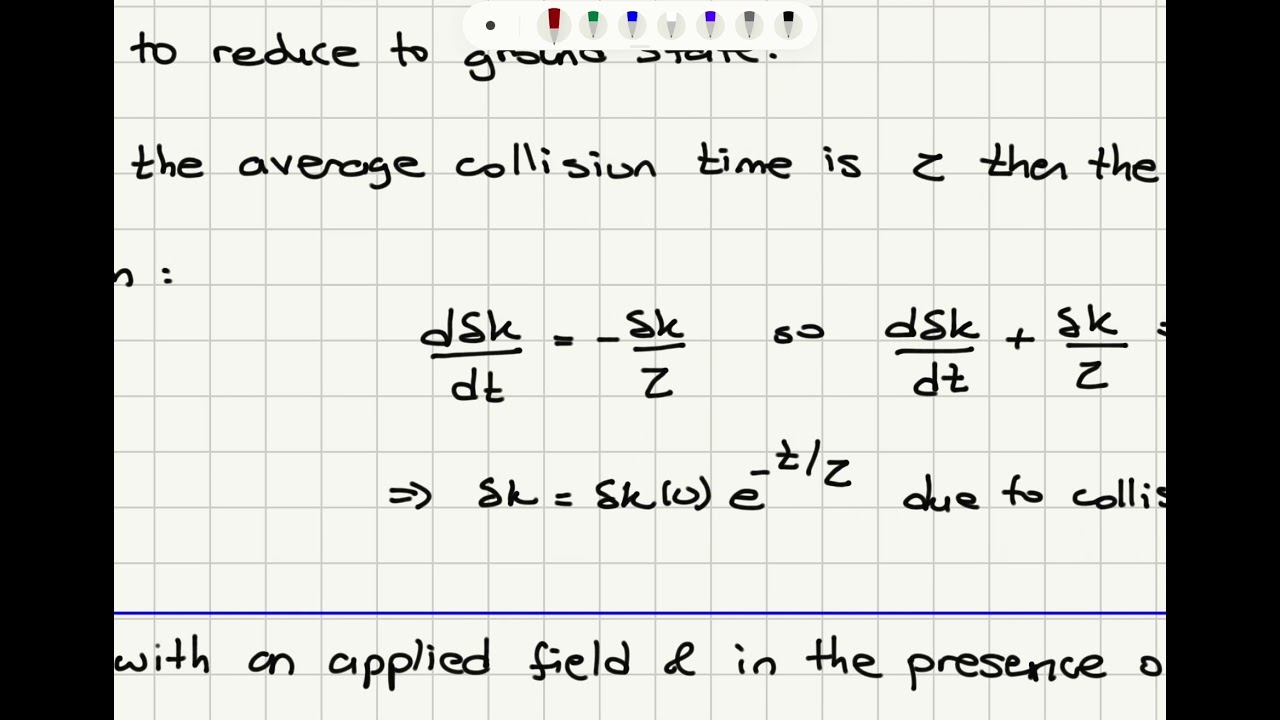 to reduce to ground state.
the average collision time is τ then the
n :
dδk/dt = - δk/τ so dδk/dt + δk/τ =
⇒ δk = δk(0) e^-t/τ due to collis
with an applied field ℰ in the presence o